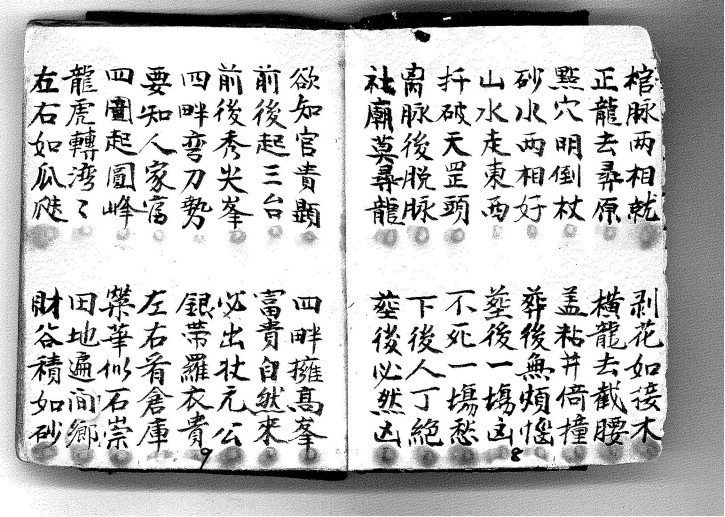 棺脉两相就 剥花如接木
正龍去尋原 橫龍去截腰
點穴明倒杖 盖粘并倚撞
砂水两相好 葬後無煩惱
山水走東西 塟後一塲凶
扦破天罡頭 不死一塲愁
离脉後脱脉 下後人丁絕
社廟莫尋龍 塟後必然凶
8
欲知官貴顯 四畔擁高峯
前後起三台 富貴自然來
前後秀尖峯 必出状元公
四畔弯刀勢 銀帶羅衣貴
要知人家富 左右有倉庫
四圍起圓峰 榮華似石崇
龍虎轉湾〻 田地遍间鄉
左右如瓜瓞 財谷積如砂
9